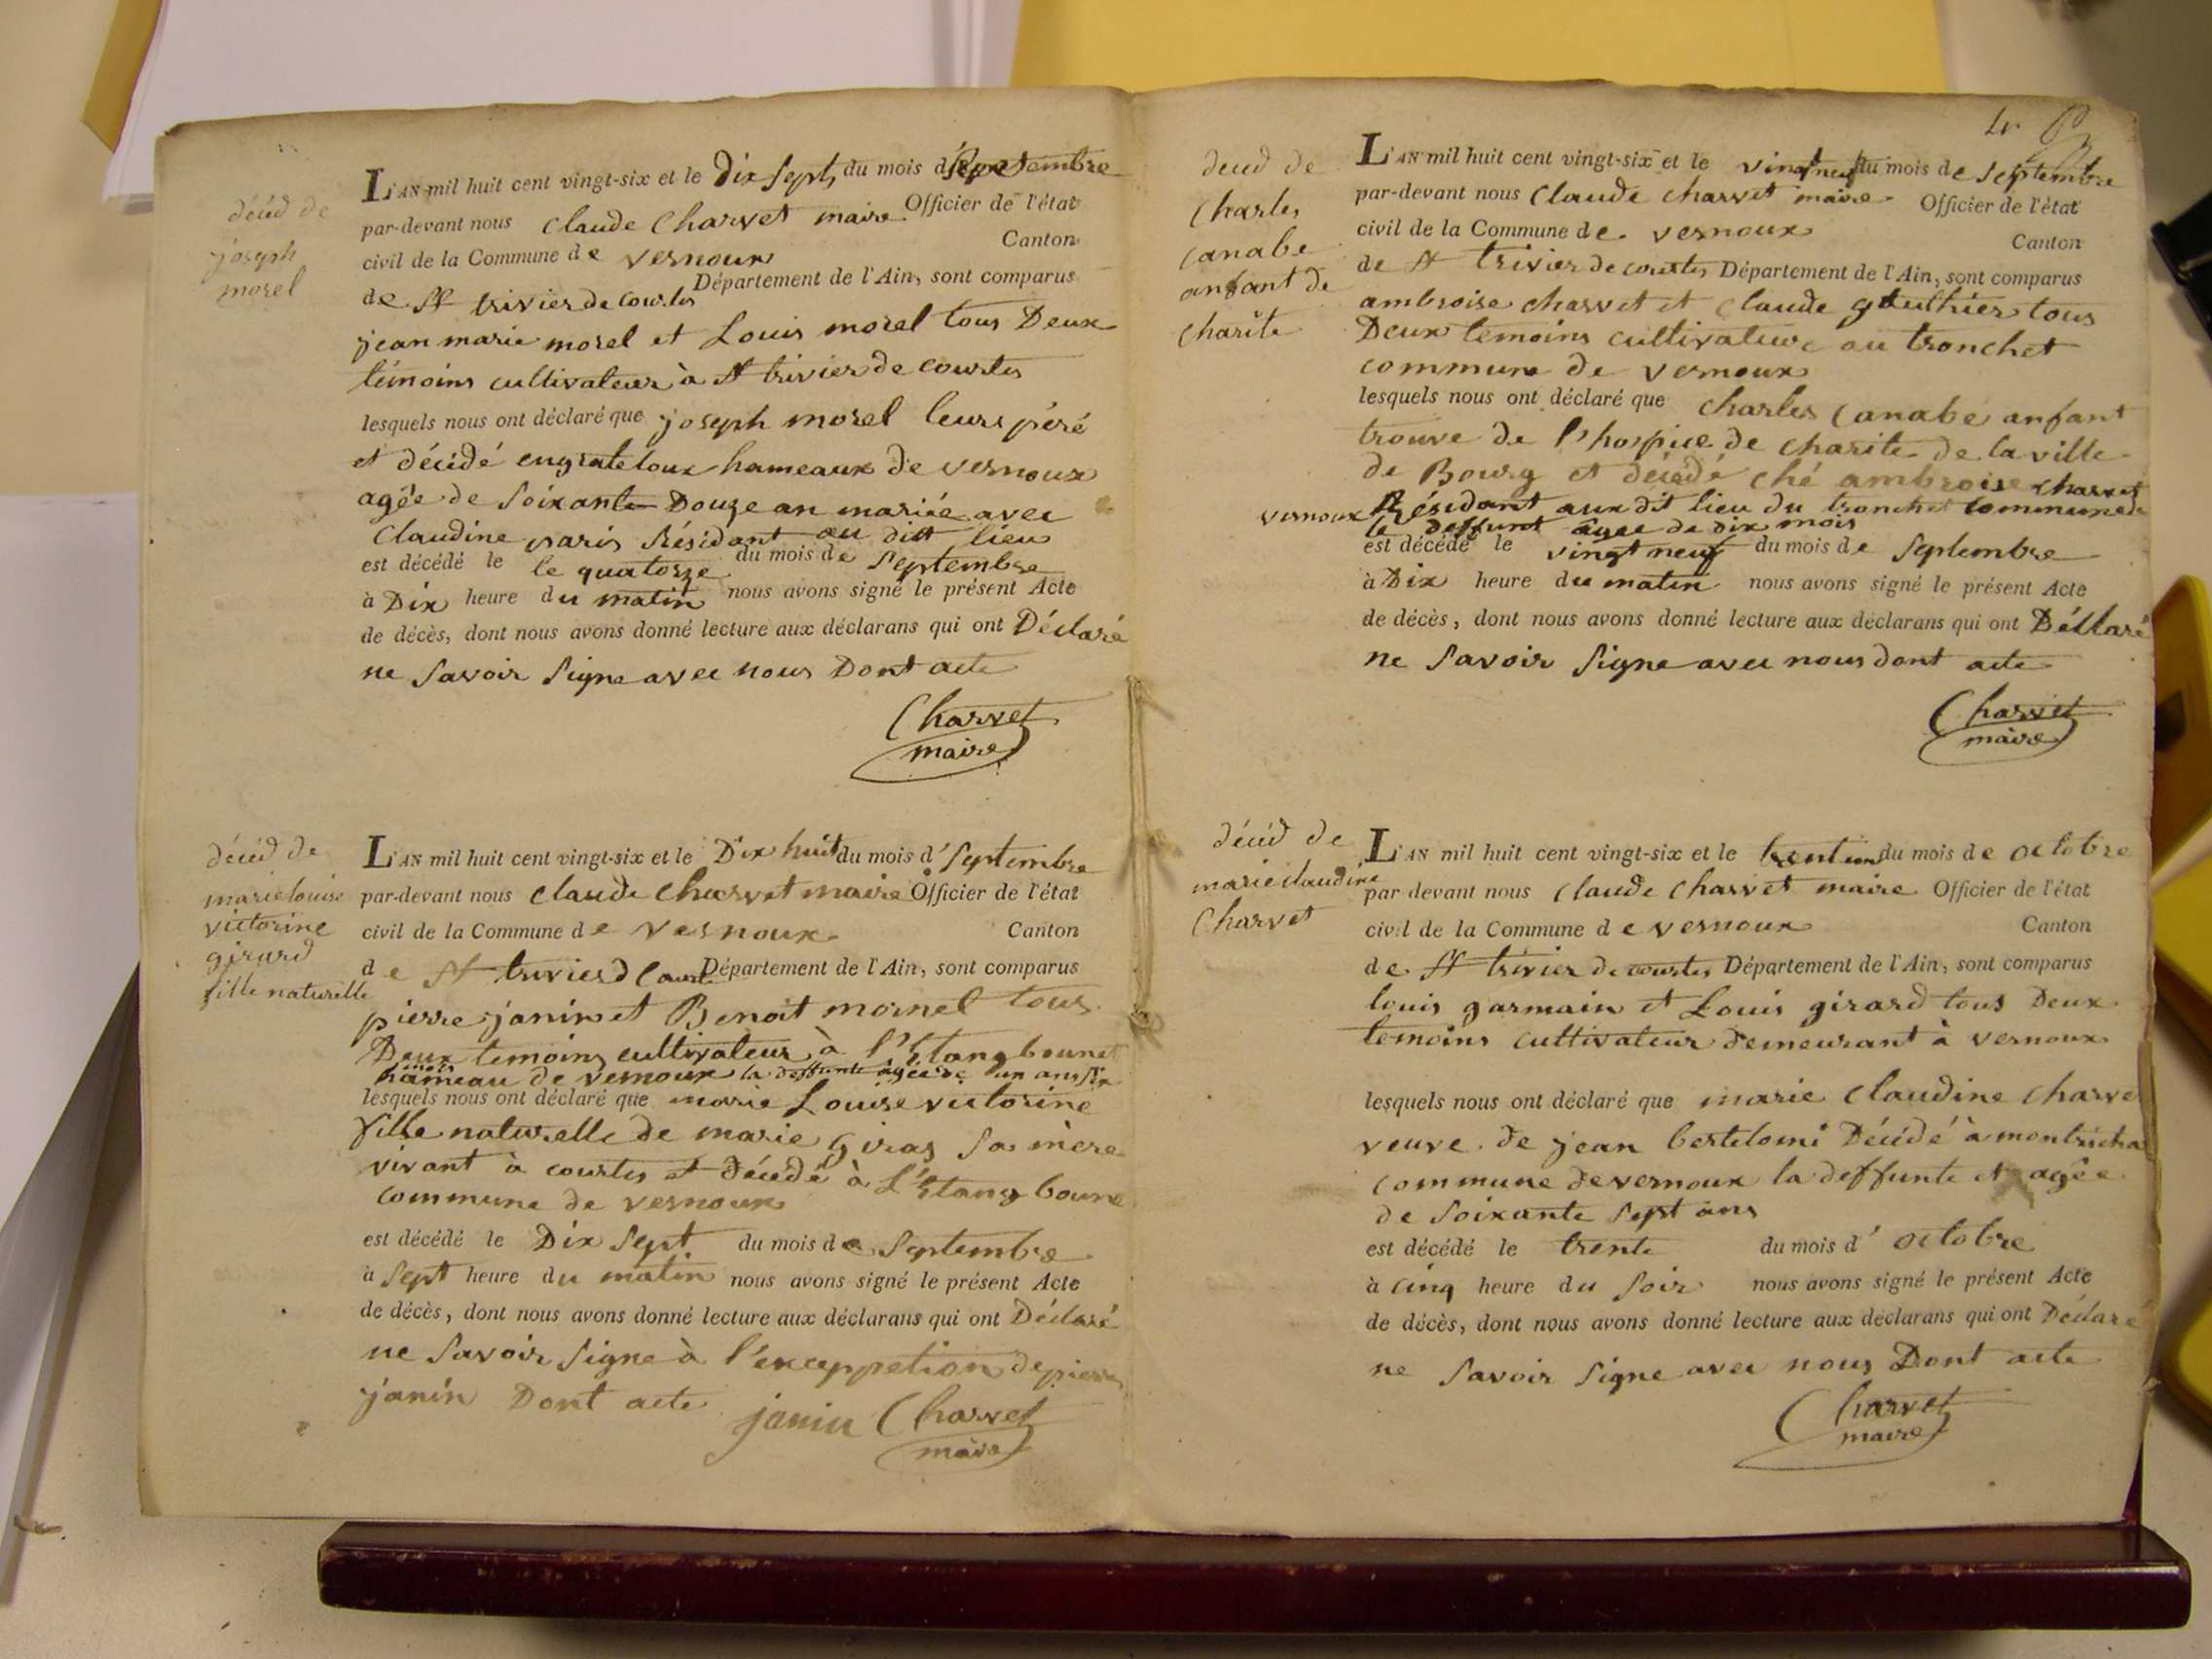 décéd de
joseph
morel
L'AN mil huit cent vingt-six et le Dix Sept du mois de Septembre
par-devant nous Claude Charvet maire Officier de l'état
civil de la Commune de vernoux Canton
de St trivier de Courtes Département de l'Ain, sont comparus
jean marie morel et Louis morel tous Deux
témoins cultivateur à St trivier de courtes
lesquels nous ont déclaré que joseph morel leurs péré
et décédé hameaux de vernoux
agée de Soixante Douze an mariée avec
Claudine paris Résidant au ditt lieu
est décédé le le quatorze du mois de Septembre
à Dix heure du matin nous avons signé le présent Acte
de décès, dont nous avons donné lecture aux déclarans qui ont Déclaré
ne Savoir Signe avec nous Dont acte
Charvet
maire
décéd de
marie louise
victorine
girard
fille naturelle
L'AN mil huit cent vingt-six et le Dix huit du mois d' Septembre
par-devant nous Claude Charvet maire Officier de l'état
civil de la Commune de vernoux Canton
de St trivier d Courte Département de l'Ain, sont comparus
pierre janin et Benoit mornel tous
Deux temoins cultivateur à l'Etang bounet
hameau de vernoux la deffunte agée de un ans six
mois
lesquels nous ont déclaré que marie Louise victorine
fille naturelle de marie Giras Sa mère
vivant à courtes et décédé à L'Etang boune
commune de vernoux
est décédé le Dix Sept du mois de Septembre
à Sept heure du matin nous avons signé le présent Acte
de décès, dont nous avons donné lecture aux déclarans qui ont Déclaré
ne Savoir Signe à l'exceppetion de pierre
janin Dont acte
janin Charvet
maire
décéd de
Charles
Canabe
anfant de
charite
L'AN mil huit cent vingt-six et le vingt neuf du mois de Septembre
par-devant nous Claude Charvet maire Officier de l'état
civil de la Commune de vernoux Canton
de St trivier de courtes Département de l'Ain, sont comparus
ambroise charvet et Claude gauthier tous
Deux temoins cultivateur au tronchet
commune de vernoux
lesquels nous ont déclaré que Charles Canabe anfant
trouve de l'hospice de charite de la ville
de Bourg et décédé ché ambroise charvet
Résidant aux dit lieu du tronchet Commune de
vernoux le deffunt agee de dix mois
est décédé le vingt neuf du mois de Septembre
à Dix heure du matin nous avons signé le présent Acte
de décès, dont nous avons donné lecture aux déclarans qui ont Déclaré
ne Savoir Signe avec nous dont acte
Charvet
maire
décéd de
marie claudine
Charvet
L'AN mil huit cent vingt-six et le trent un du mois de octobre
par devant nous Claude Charvet maire Officier de l'état
civil de la Commune de vernoux Canton
de St trivier de courtes Département de l'Ain, sont comparus
louis garmain et Louis girard tous Deux
temoins cultivateur demeurant à vernoux
lesquels nous ont déclaré que marie Claudine Charve
veuve de jean bertelomi Décédé à montricha
commune de vernoux la deffunte et agée
de Soixante Sept ans
est décédé le trente du mois d' octobre
à Cinq heure du Soir nous avons signé le présent Acte
de décès, dont nous avons donné lecture aux déclarans qui ont Déclaré
ne Savoir Signe avec nous Dont acte
Charvet
maire